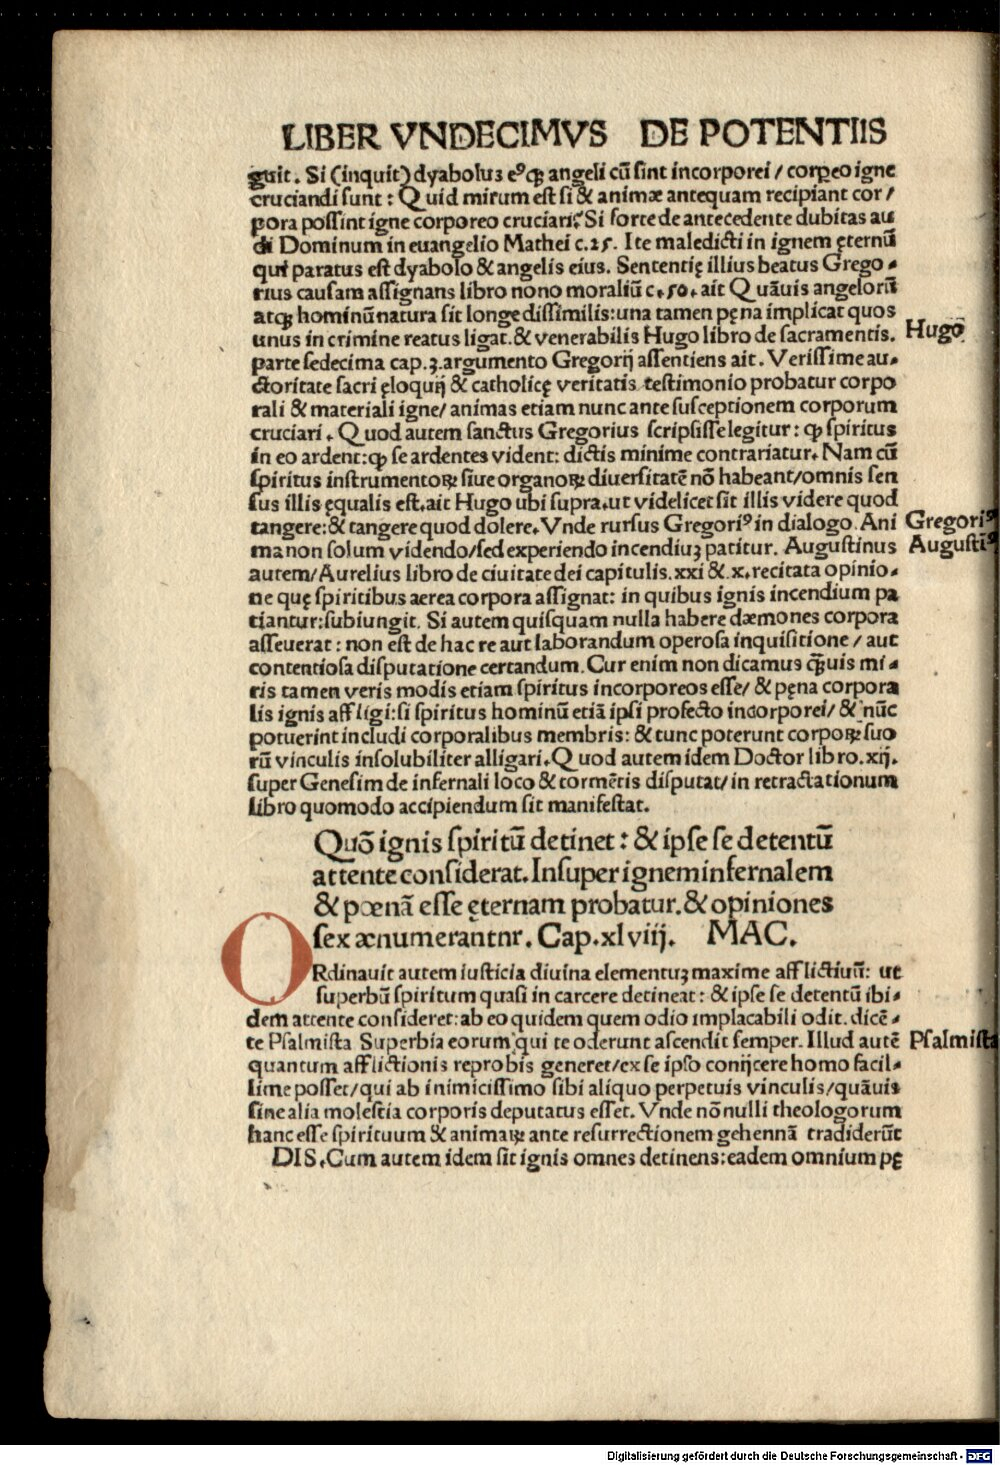 LIBER VNDECIMVS DE POTENTIIS
guit. Si (inquit) dyaboluȝ eꝰqꝫ angeli cū sint incorporei / corꝑeo igne
cruciandi sunt : Quid mirum est si & animæ antequam recipiant cor /
pora possint igne corporeo cruciari: Si forte de antecedente dubitas au
di Dominum in euangelio Mathei c.25. Ite maledicti in ignem ęternū
qui paratus est dyabolo & angelis eius. Sententię illius beatus Grego-
rius causam assignans libro nono moraliū c.50. ait Quāuis angelorū
atqꝫ hominū natura sit longe dissimilis: una tamen pęna implicat quos
unus in crimine reatus ligat. & venerabilis Hugo libro de sacramentis.
Hugo
parte sedecima cap.3. argumento Gregorij assentiens ait. Verissime au-
ctoritate sacri ęloquij & catholicę veritatis testimonio probatur corpo
rali & materiali igne/ animas etiam nunc ante susceptionem corporum
cruciari. Quod autem sanctus Gregorius scripsisse legitur: ꝙ spiritus
in eo ardent: ꝙ se ardentes vident: dictis minime contrariatur. Nam cū
spiritus instrumentoꝝ siue organoꝝ diuersitatē nō habeant/omnis sen
sus illis ęqualis est. ait Hugo ubi supra. ut videlicet sit illis videre quod
tangere: & tangere quod dolere. Vnde rursus Gregoriꝰ in dialogo. Ani
Gregoriꝰ
ma non solum videndo/sed experiendo incendiuȝ patitur. Augustinus
Augustiꝰ
autem/Aurelius libro de ciuitate dei capitulis. xxi & .x. recitata opinio-
ne quę spiritibus aerea corpora assignat: in quibus ignis incendium pa
tiantur: subiungit. Si autem quisquam nulla habere dæmones corpora
asseuerat : non est de hac re aut laborandum operosa inquisitione / aut
contentiosa disputatione certandum. Cur enim non dicamus qꝫuis mi-
ris tamen veris modis etiam spiritus incorporeos esse/ & pęna corpora
lis ignis affligi: si spiritus hominū etiā ipsi profecto incorporei/ & nūc
potuerint includi corporalibus membris: & tunc poterunt corpoꝝ suo
rū vinculis insolubiliter alligari. Quod autem idem Doctor libro. xij.
super Genesim de infernali loco & tormētis disputat/in retractationum
libro quomodo accipiendum sit manifestat.
Quō ignis spiritū detinet : & ipse se detentū
attente considerat. Insuper ignem infernalem
& pœnā esse ęternam probatur. & opiniones
sex ænumerantnr. Cap. xlviij. MAC.
ORdinauit autem iusticia diuina elementuȝ maxime afflictiuū: ut
superbū spiritum quasi in carcere detineat : & ipse se detentū ibi-
dem attente consideret: ab eo quidem quem odio implacabili odit. dicē-
te Psalmista Superbia eorum qui te oderunt ascendit semper. Illud autē
Psalmista
quantum afflictionis reprobis generet/ex se ipso conijcere homo facil-
lime posset/qui ab inimicissimo sibi aliquo perpetuis vinculis/quāuis
sine alia molestia corporis deputatus esset. Vnde nōnulli theologorum
hanc esse spirituum & animaꝝ ante resurrectionem gehennā tradiderūt
DIS. Cum autem idem sit ignis omnes detinens: eadem omnium pę
Digitalisierung gefördert durch die Deutsche Forschungsgemeinschaft - DFG